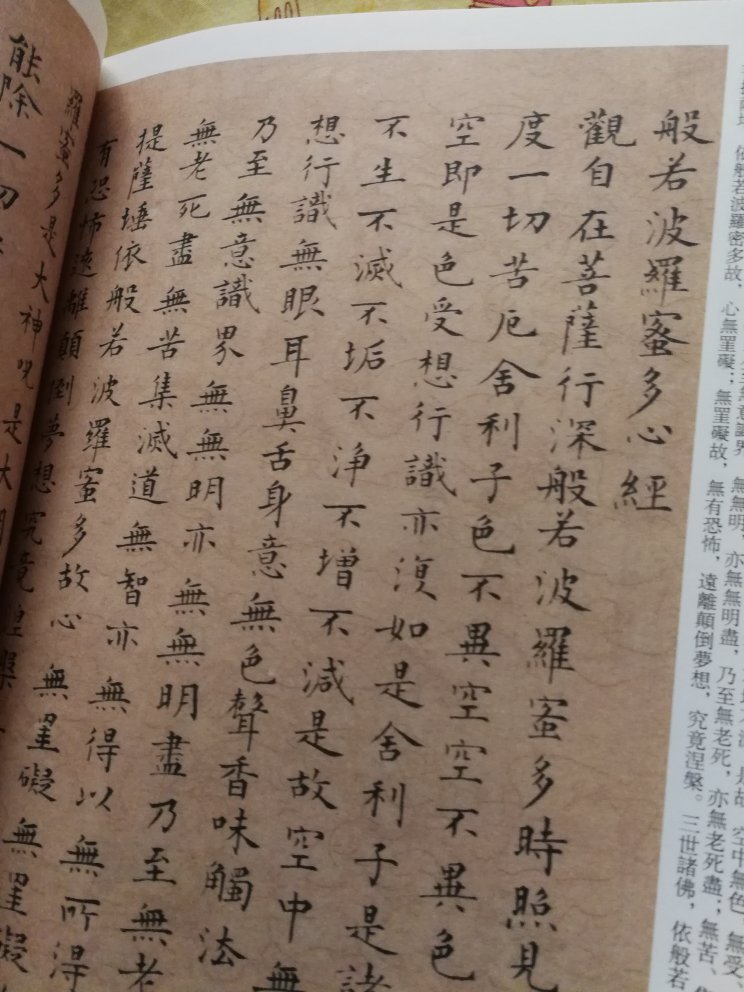 是故,空中無色,無受、
無意識界,無無明,亦無無明盡,乃至無老死,亦無老死盡;無苦、
依般若波羅密多故,心無罣礙;無罣礙故,無有恐怖,遠離顛倒夢想,究竟涅槃。三世諸佛,依般若
般若波羅蜜多心經
觀自在菩薩行深般若波羅蜜多時照見
度一切苦厄舍利子色不異空空不異色
空即是色受想行識亦復如是舍利子是諸
不生不滅不垢不淨不增不減是故空中無
想行識無眼耳鼻舌身意無色聲香味觸法
乃至無意識界無無明亦無無明盡乃至無老
無老死盡無苦集滅道無智亦無得以無所得
提薩埵依般若波羅蜜多故心無罣礙無罣礙
有恐怖遠離顛倒夢想究竟涅槃
羅蜜多是大神咒是大明
能除一切